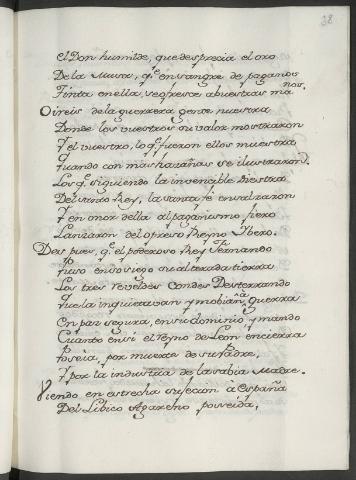 38
el Don humilde, que desprecia el oro
De la Musa, q.e en sangre de paganos
Tinta en ella, se ofrece a buestras ma
nos.
Oireis de la guerrera gente nuestra
Donde los vuestros su valor mostraron
Y el vuestro, lo q.e fueron ellos muestra
Quando con mas hazañas se ilustraron.
Los q.e siguiendo la invencible Diestra
Del Santo Rey, la santa fe ensalzaron
Y en onor della al paganismo fiero
Lanzaron del opreso Reyno Ybero.
Despues, q.e el poderoso Rey Fernando
Puso en sosiego su alterada tierra
Los tres reveldes Condes Desterrando
Que la inquietavan y mobian
guerra
En paz segura, en su dominio, y mando
Cuanto en si el Reyno de Leon encierra
Poseia, por muerte de su Padre,
Y por la industria de la sabia Madre.
Viendo en estrecha sujecion à España
Del Libico Agareno poseida,